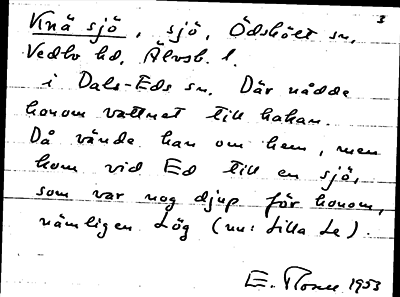 3
Knä sjö, sjö, Ödskölt sn,
Vedbo hd, Älvsb. l.
i Dals-Eds sn. Där nådde
honom vattnet till hakan.
Då vände han om hem, men
kom vid Ed till en sjö,
som var nog djup för honom,
nämligen Lög (nu: Lilla Le).
E. 1953